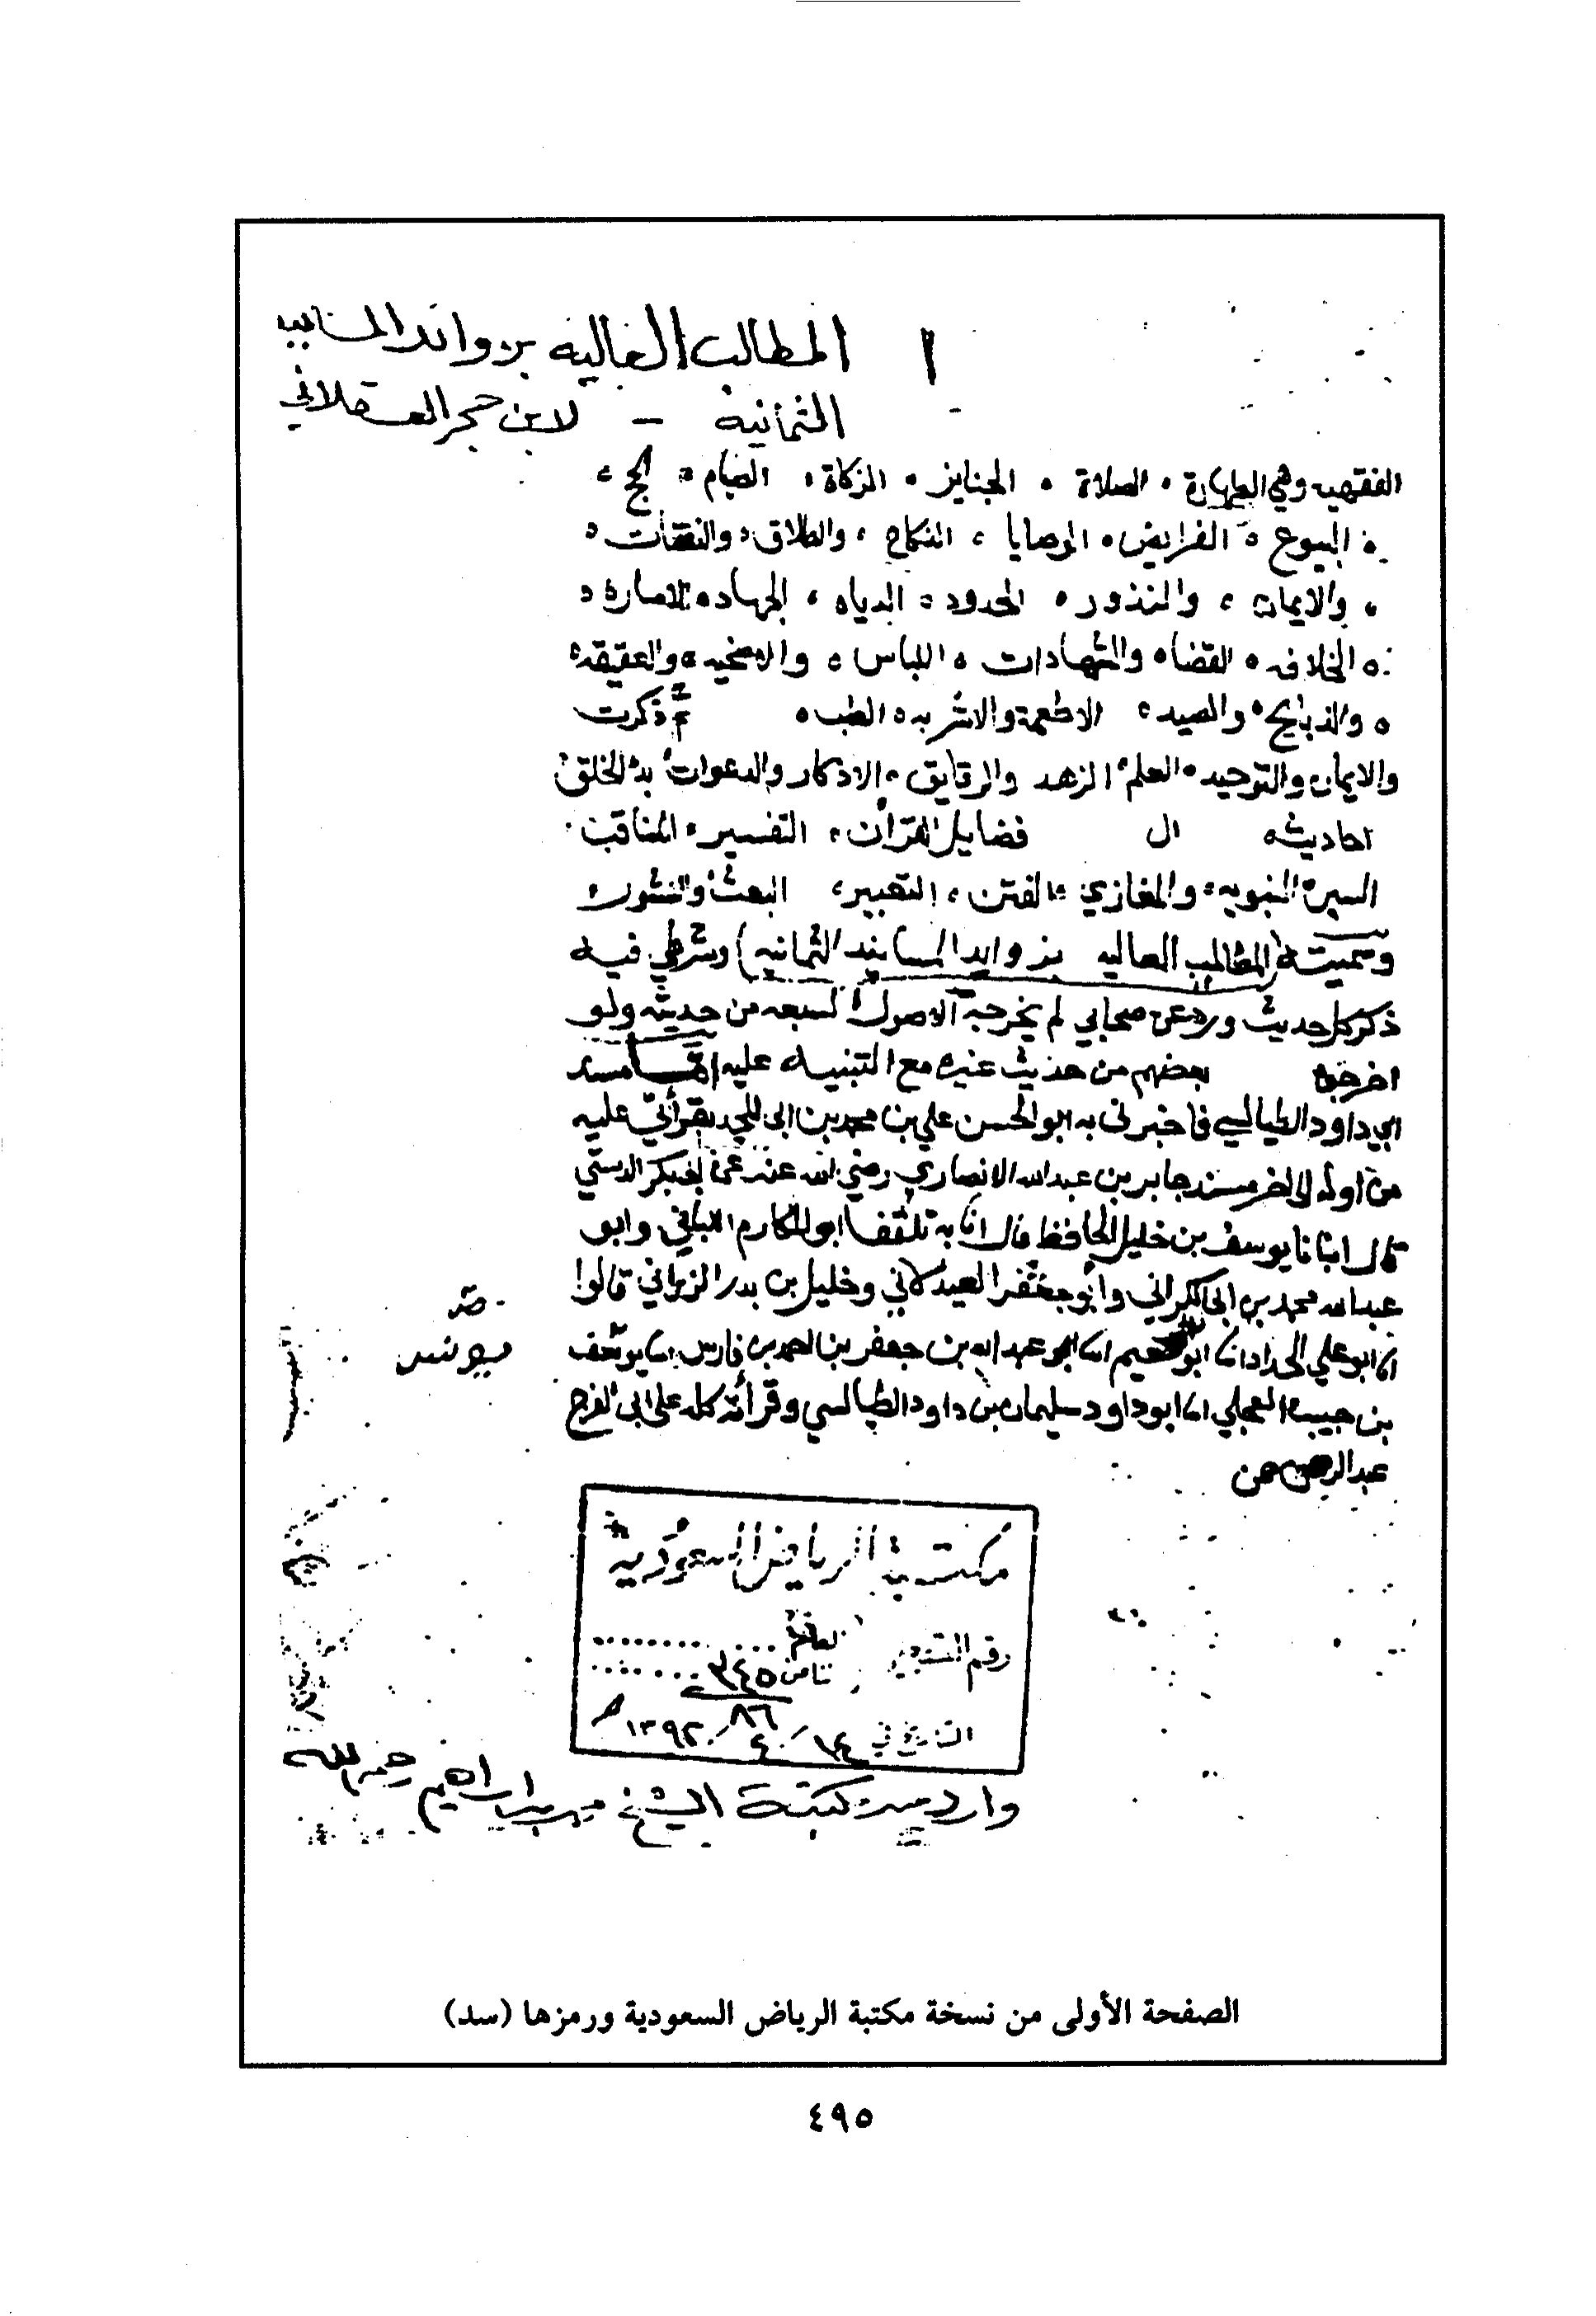 ١ المطالب العاليه بزوائد المسانيد
الثمانية – لابن حجر العسقلاني
الفقهيه وهي الطهارة ، الصلاة ، الجنايز ، الزكاة ، الصيام ، الحج ،
البيوع ، الفرايض ، الوصايا ، النكاح ، والطلاق ، والنفقات ،
، والايمان ، والنذور ، الحدود ، الدياه ، الجهاد ، الامارة ،
الخلافه ، القضا ، والشهادات ، اللباس ، والاضحيه ، والعقيقه ،
، والذبايح ، والصيد ، الاطعمة والاشربه ، الطب ، ثم ذكرت
والايمان والتوحيد ، العلم ، الزهد والرقايق ، الاذكار والدعوات ، بدء الخلق ،
احاديث ال فضايل القرآن ، التفسير ، المناقب
السيره النبويه ، والمغازي ، الفتن ، التعبير ، البعث والنشور ،
وسميته (المطالب العاليه بزوايد المسانيد الثمانيه) وشرطي فيه
ذكر كل حديث ورد عن صحابي لم يخرجه الاصول السبعه من حديثه ولو
اخرجه بعضهم من حديث غيره مع التنبيه عليه مسند
ابي داود الطيالسي فاخبرني به ابو الحسن علي بن محمد بن ابي المجد بقرأتي عليه
من اوله الى اخر مسند جابر بن عبدالله الانصاري رضي الله عنه عن الدشتي
قال انبانا يوسف بن خليل الحافظ قال انا به ابو المكارم اللبان وابو
عبدالله محمد بن الكراني وابو جعفر الصيدلاني وخليل بن بدر الرراني قالوا
انا ابو علي الحداد انا ابو نعيم انا عبد الله بن جعفر بن احمد بن فارس انا يونس
يونس
بن حبيب العجلي انا ابو داود سليمان بن داود الطيالسي وقرأته كله على ابي الفرج
عبد الرحمن بن
مكتبة الرياض السعودية
رقم التسجيل العام
خاص ٣٤٥
٨٦
التاريخ في ١٤ / ٤ / ١٣٩٢ هـ
وارد من مكتبة الشيخ محمد بن ابراهيم رحمه الله
الصفحة الأولى من نسخة مكتبة الرياض السعودية ورمزها (سد)
٤٩٥